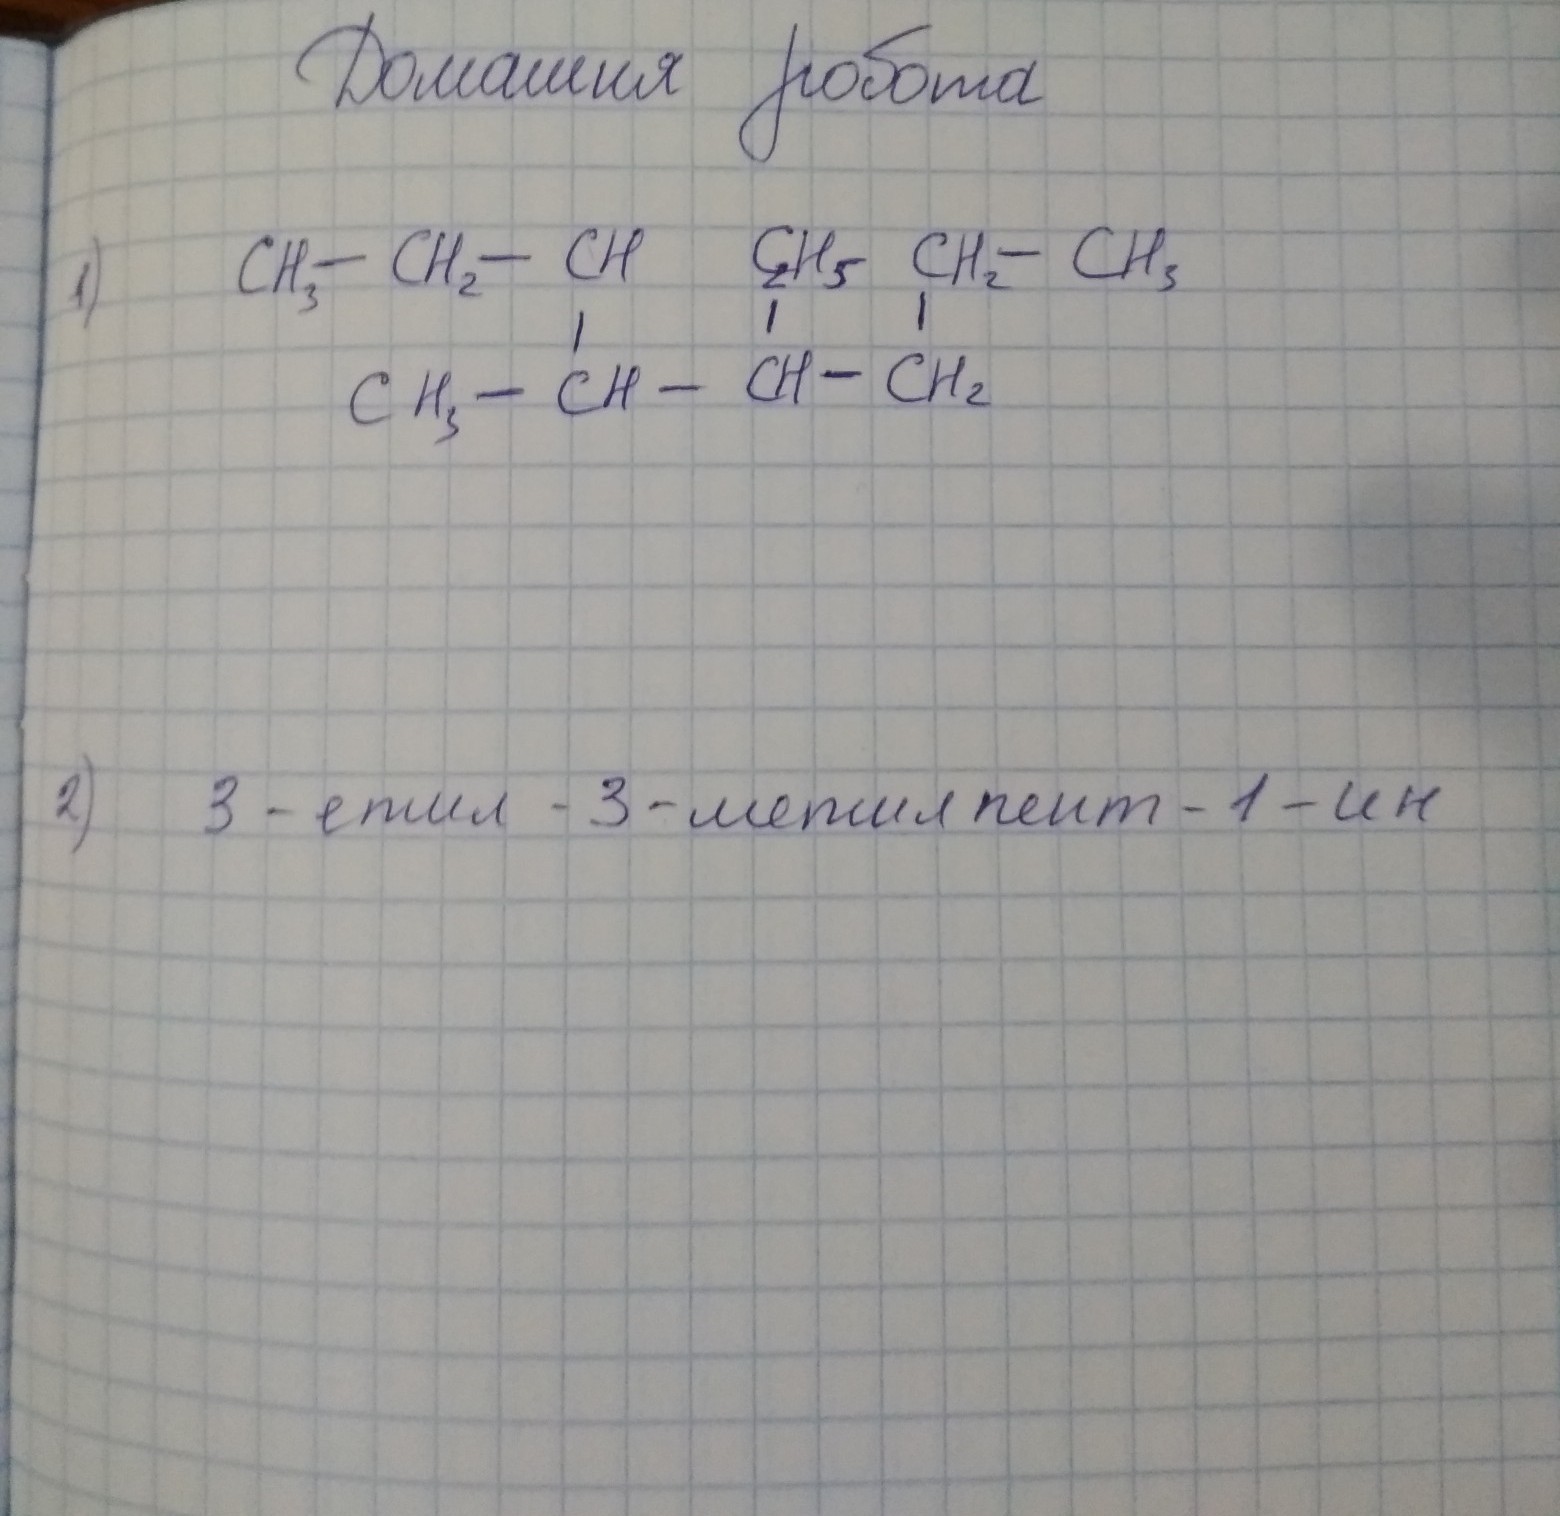 Домашня робота
1) CH₃ – CH₂ – CH C₂H₅ CH₂ – CH₃
| | |
CH₃ – CH – CH – CH₂
2) 3 - етил - 3 - метилпент - 1 - ин